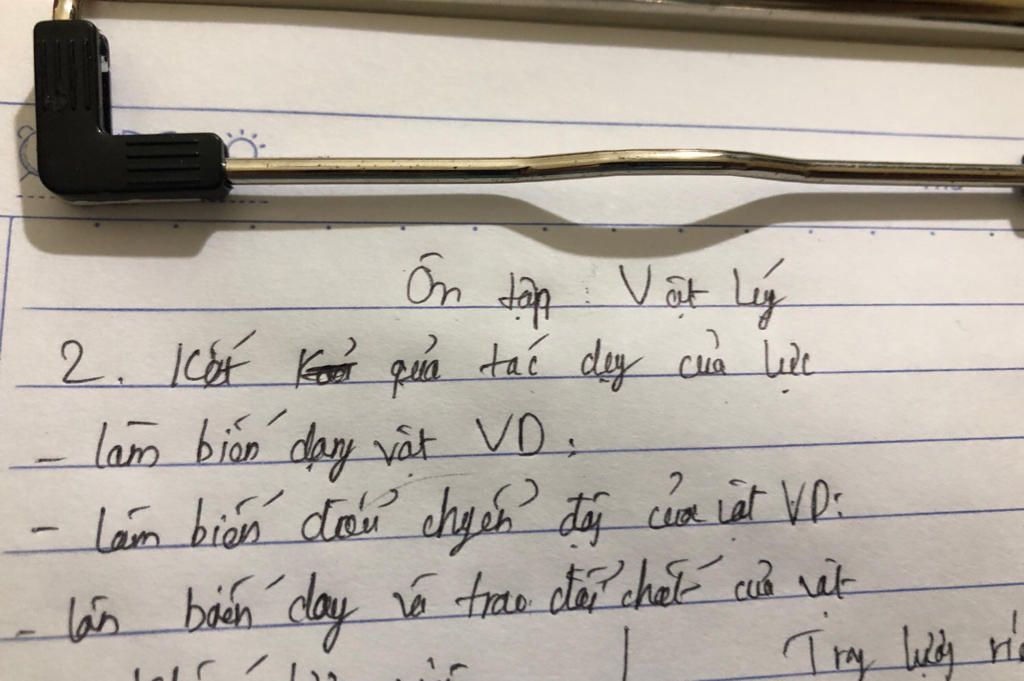 Ôn tập : Vật Lý
2. Kết quả tác dụg của lực
- làm biến dạng vật VD :
- làm biến đổi chyển độg của vật VD:
- làm biến dạy và trao đổi chất của vật
Trọg lượg